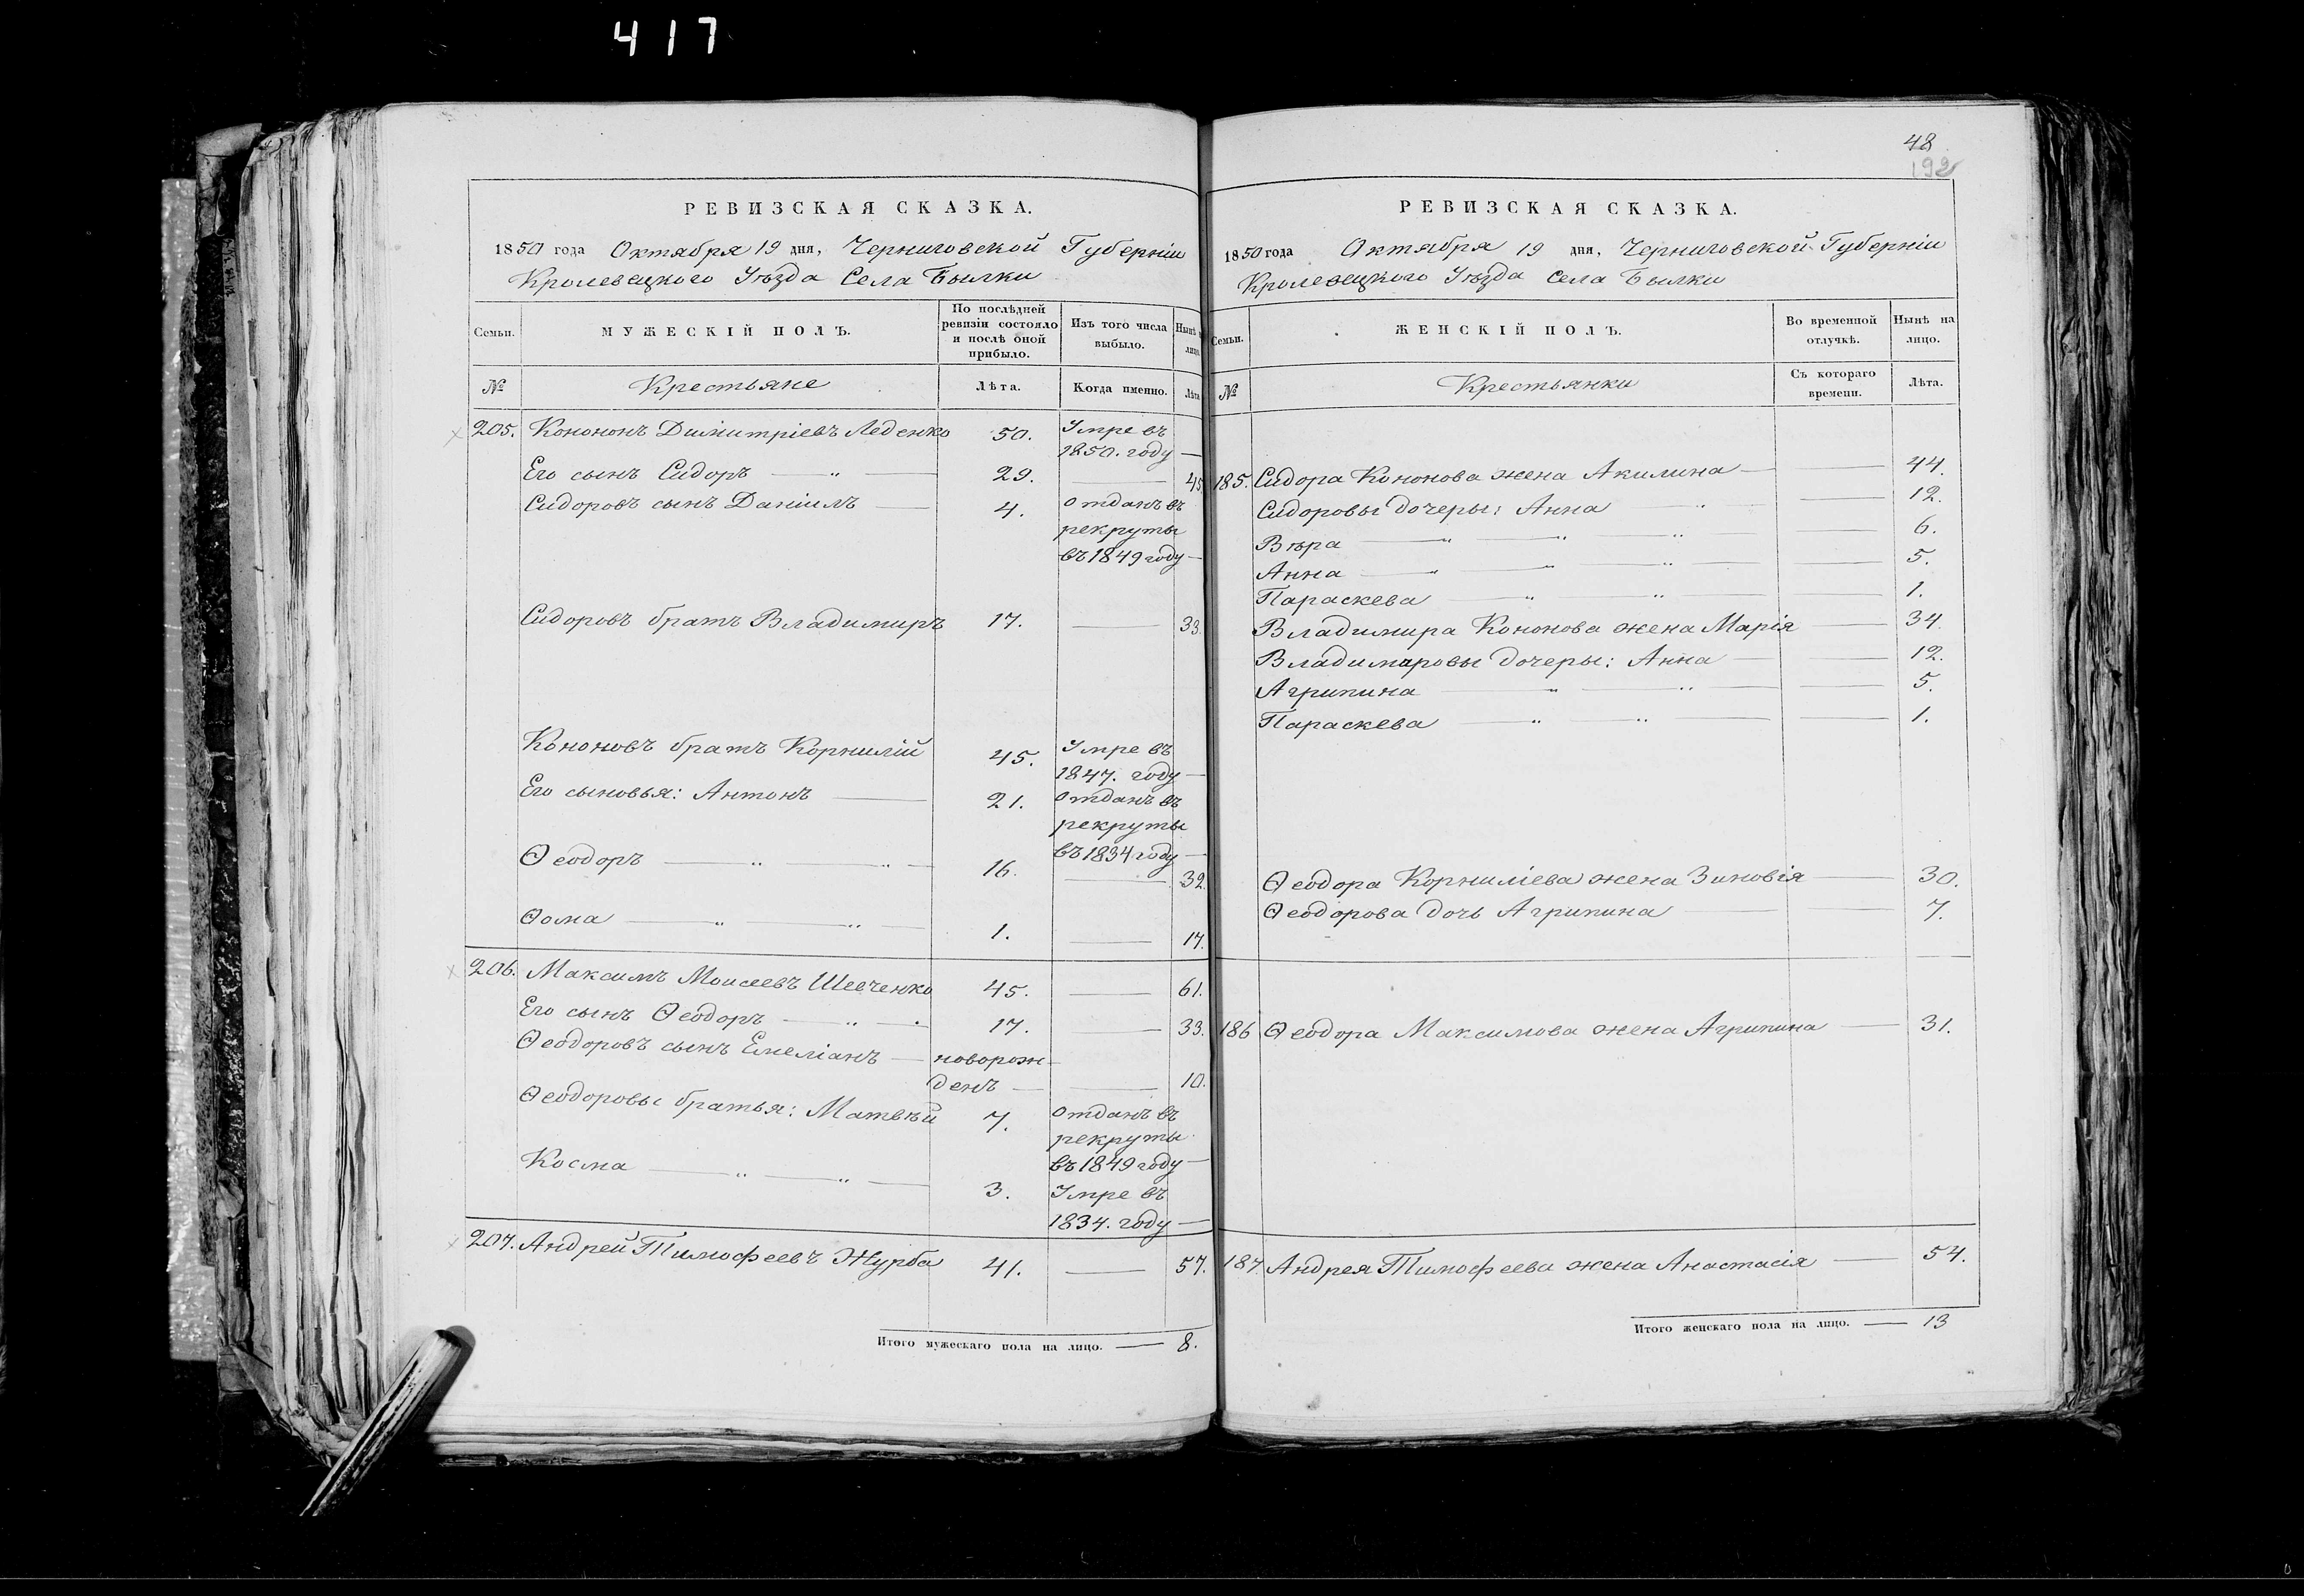 417
РЕВИЗСКАЯ СКАЗКА.
1850 года Октября 19 дня, Черниговской Губерніи
Кролевецкого Уѣзда Села Былки
Семьи. МУЖЕСКІЙ ПОЛЪ. По послѣдней ревизіи состояло и послѣ оной прибыло. Изъ того числа выбыло. Нынѣ лицо.
№ Крестьяне Лѣта. Когда именно. Лѣта
205. Кононъ Димитріевъ Леденко 50. Умре въ
1850. году —
Его сынъ Сидоръ — „ — 29. — 45
Сидоровъ сынъ Даніилъ — 4. отданъ въ
рекруты
въ 1849 году —
Сидоровъ братъ Владимиръ 17. — 33.
Кононовъ братъ Корнилій 45. Умре въ
1847. году —
Его сыновья: Антонъ — 21. отданъ въ
рекруты
въ 1834 году —
Ѳеодоръ — „ — „ — 16. — 32.
Ѳома — „ — „ — 1. — 17.
206. Максимъ Моисеевъ Шевченко 45. — 61.
Его сынъ Ѳеодоръ — „ — 17. — 33.
Ѳеодоровъ сынъ Емеліанъ — новорож-
денъ — — 10.
Ѳеодоровы братья: Матвѣй 7. отданъ въ
рекруты
въ 1849 году —
Косма — „ — „ — 3. Умре въ
1834. году —
207. Андрей Тимофеевъ Журба 41. — 57.
Итого мужескаго пола на лицо. — 8.
48
192
РЕВИЗСКАЯ СКАЗКА.
1850 года Октября 19 дня, Черниговской Губерніи
Кролевецкого Уѣзда Села Былки
Семьи. ЖЕНСКІЙ ПОЛЪ. Во временной отлучкѣ. Нынѣ на лицо.
№ Крестьянки Съ котораго времени. Лѣта.
185. Сидора Кононова жена Акилина — — 44.
Сидоровы дочеры: Анна — „ — 12.
Вѣра — „ — „ — „ — — 6.
Анна — „ — „ — „ — — 5.
Параскева — „ — „ — — 1.
Владимира Кононова жена Марія — 34.
Владимировы дочеры: Анна — — 12.
Агрипина — „ — „ — — 5.
Параскева — „ — „ — — 1.
Ѳеодора Корниліева жена Зиновія — 30.
Ѳеодорова дочь Агрипина — — 7.
186 Ѳеодора Максимова жена Агрипина — 31.
187. Андрея Тимофеева жена Анастасія — 54.
Итого женскаго пола на лицо. — 13